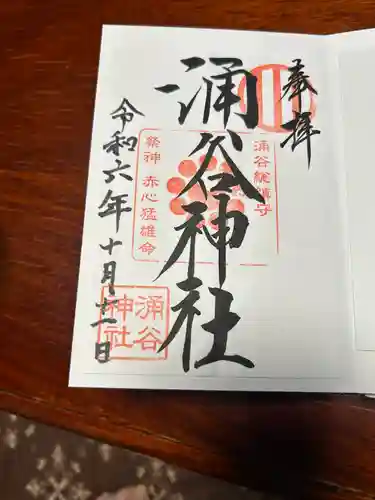 奉拝
涌谷総鎮守
涌谷神社
祭神 赤心猛雄命
令和六年十月十一日
涌谷
神社